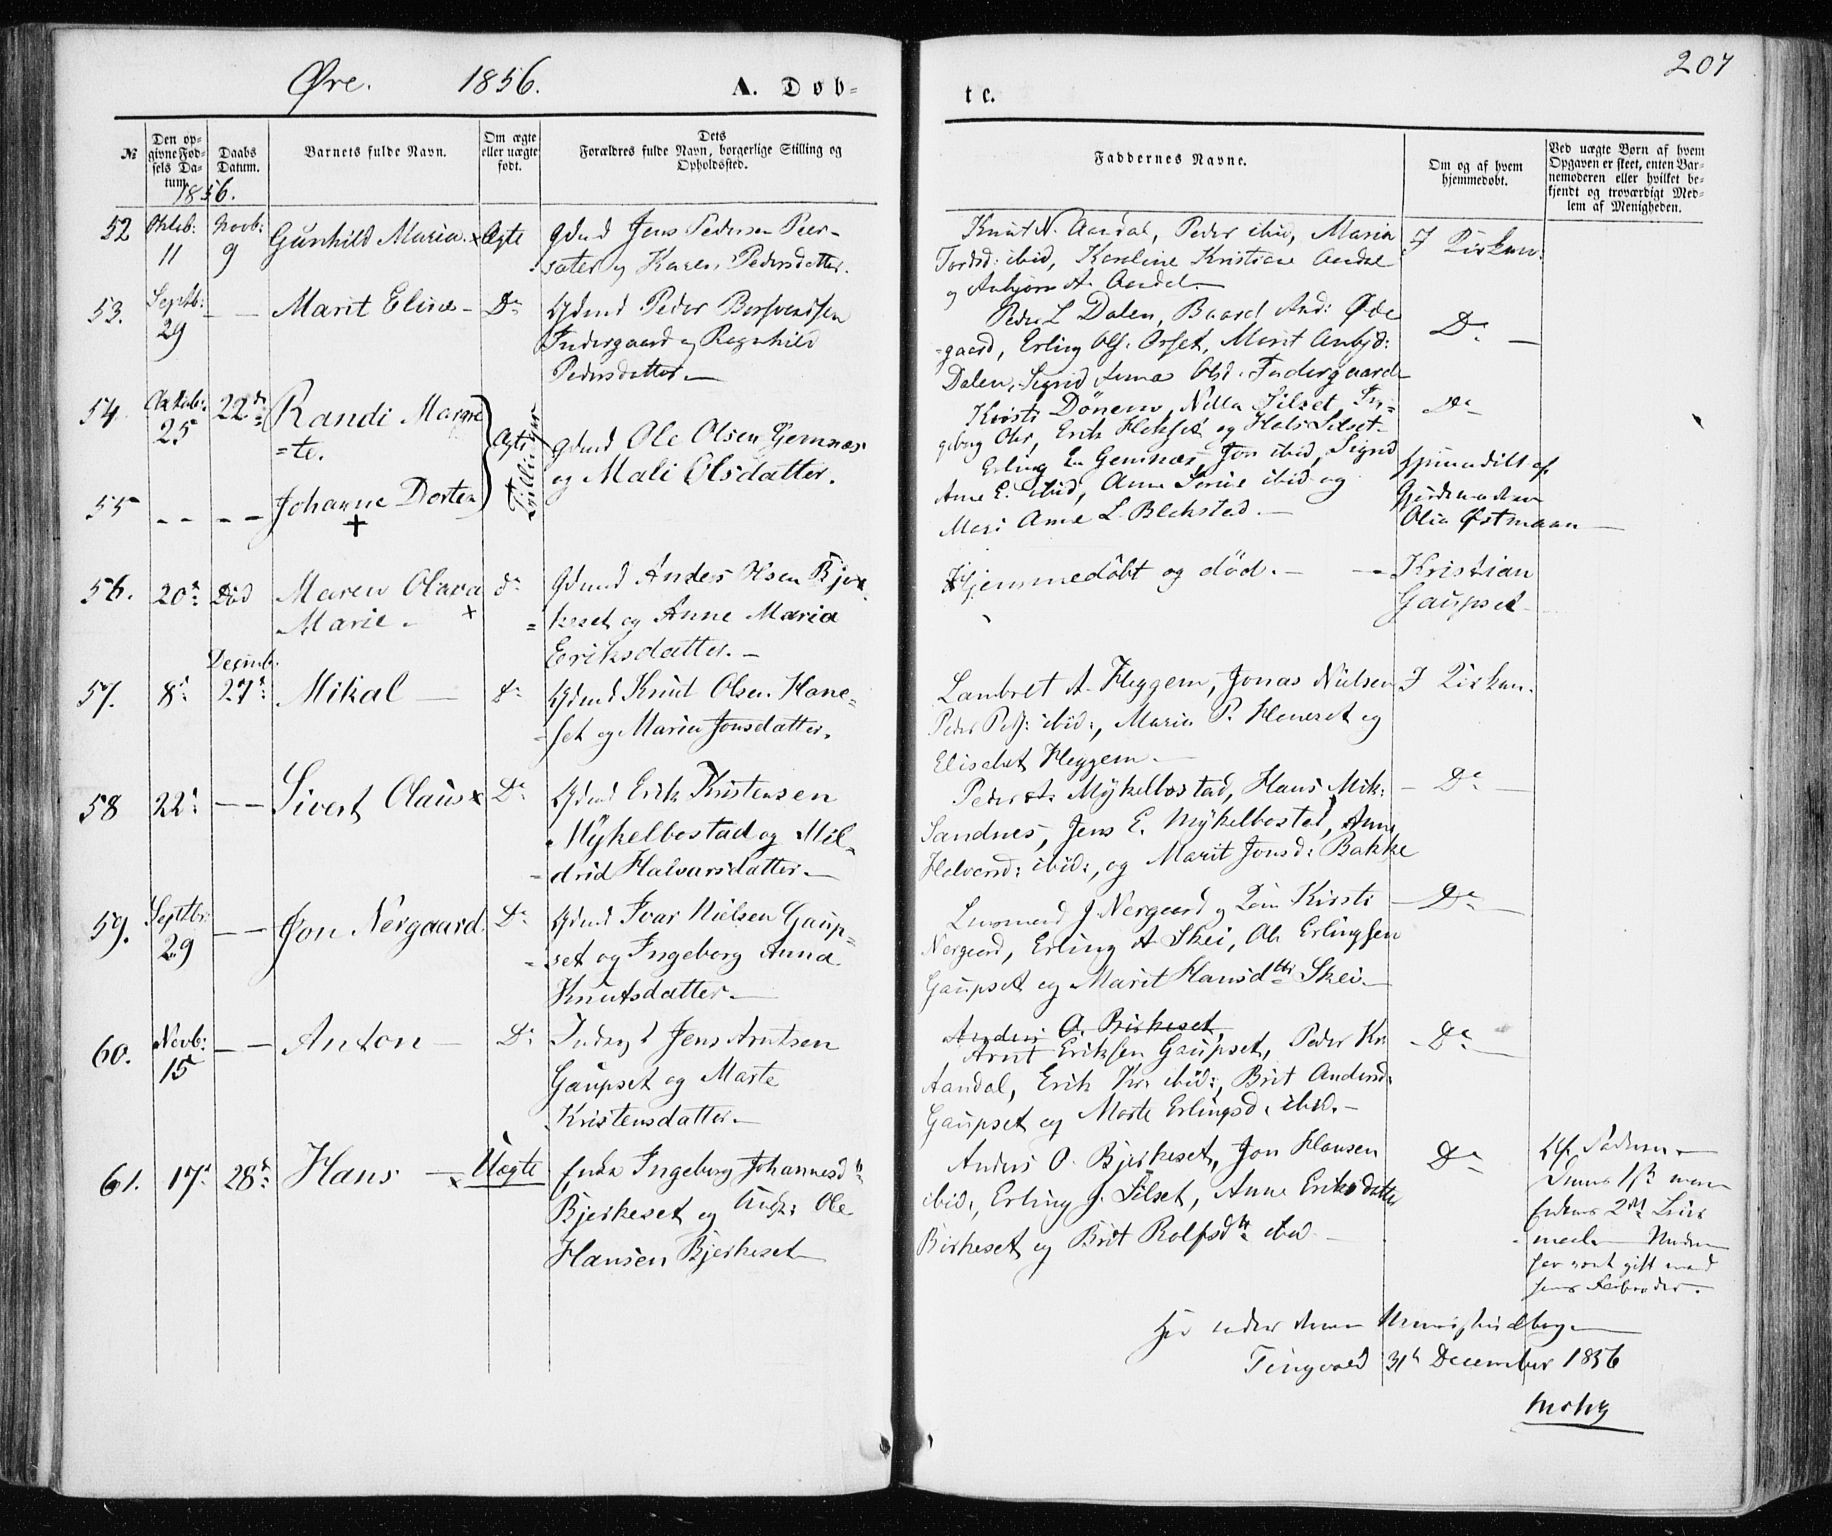 207
Øre. 1856. A. Døb-
te.
№
Den op-
givne Fød-
sels Da-
tum.
Daabs
Datum.
Barnets fulde Navn.
Om ægte
eller uægte
født.
Dets
Forældres fulde Navn, borgerlige Stilling og
Opholdssted.
Faddernes Navne.
Om og af hvem
hjemmedøbt.
Ved uægte Børn af hvem
Opgaven er skeet, enten Bar-
nemoderen eller hvilket be-
kjendt og troværdigt Med-
lem af Menigheden.
1856.
52 Oktob: 11 Novb: 9 Gunhild Maria Ægte
Gdmd Jens Pedersen Peer-
sæter og Karen Pedersdatter.
Knut N. Aandal, Peder ibid, Maria
Tordsd: ibid, Karoline Kristiane Aandal
og Anbjørn A. Aandal.
I Kirken.
53. Septb: 29 — — Marit Eline — Do
Gdmd Peder Bersvendsen
Indergaard og Ragnhild
Pedersdatter —
Peder L Dalen, Baard And: Øde
gaard, Erling Ols. Orset, Marit Anbjd:
Dalen, Sigrid Anna Olsd. Indergaard
Do —
54. Oktob: 25 22de Randi Margre
=te.
55 -- -- Johanne Dorten
+
Ægte Tvillinger
Gdmd Ole Olsen Gemnæs
og Mali Olsdatter.
Kirsti Dønem, Nella Silset, In-
geborg Ohr, Erik Hekset og Hals Silset
Erling E. Gemnæs, Jon ibid, Sigrid
Ane E. ibid, Anne Serine ibid og
Mari Ane L. Blekstad. —
Do
hjemmedøbt af
Gjordemoderen
Olia Østmann
56. 20de Død Maren Olava
Marie. + do
Gdmd Anders Olsen Bjer
keset og Anne Maria
Eriksdatter. —
Hjemmedøbt og død. —
Kristian
Gaupset
57. 8de Decemb. 27de Mikal — do
Gdmd Knut Olsen Hane-
set og Maria Jonsdatter.
Lambret A. Heggem, Jonas Nielsen
Peder Peds: ibid:, Maria P. Haneset og
Elisabet Heggem. —
I Kirken.
58 22de — — Sivert Olaus Do
Gdmd Erik Kristensen
Mykelbostad og Mil-
drid Halvarsdatter. —
Peder A. Mykelbostad, Hans Mik:
Sandnes, Jens E. Mykelbostad, Anne
Halvorsd: ibid:, og Marit Jonsd: Bakke
— Do —
59. Septbr: 29 — — Jon Nergaard. Do
Gdmd Ivar Nielsen Gaup-
set og Ingeborg Anna
Knutsdatter. —
J. Nergaard og Kirsti
Nergaard, Erling A Skei, Ole Erlingsen
Gaupset og Marit Hansdtr Skei. —
— Do —
60. Novb: 15 — — Anton — Do
Inderst Jens Arntsen
Gaupset og Marte
Kristensdatter. —
Anders O. Birkeset,
Arnt Eriksen Gaupset, Peder Kr.
Aandal, Erik Kr. ibid:, Brit Andersd:
Gaupset og Marte Erlingsd. ibid. —
— Do —
61. 17de 28de Hans — Uægte
Enke Ingeborg Johannesdtr
Bjerkeset og Ungk: Ole
Hansen Bjerkeset
Anders O. Bjerkeset, Jon Hansen
ibid:, Erling J. Silset, Anne Eriksdatter
Birkeset og Brit Rolfsdtr ibid.
Do
Af Faderen —
Dennes 1ste men
Enkens 2det Leier
maal — Hun
har været gift med
hans Farbroder.
Her ender denne Ministerialbog —
Tingvold 31te December 1856